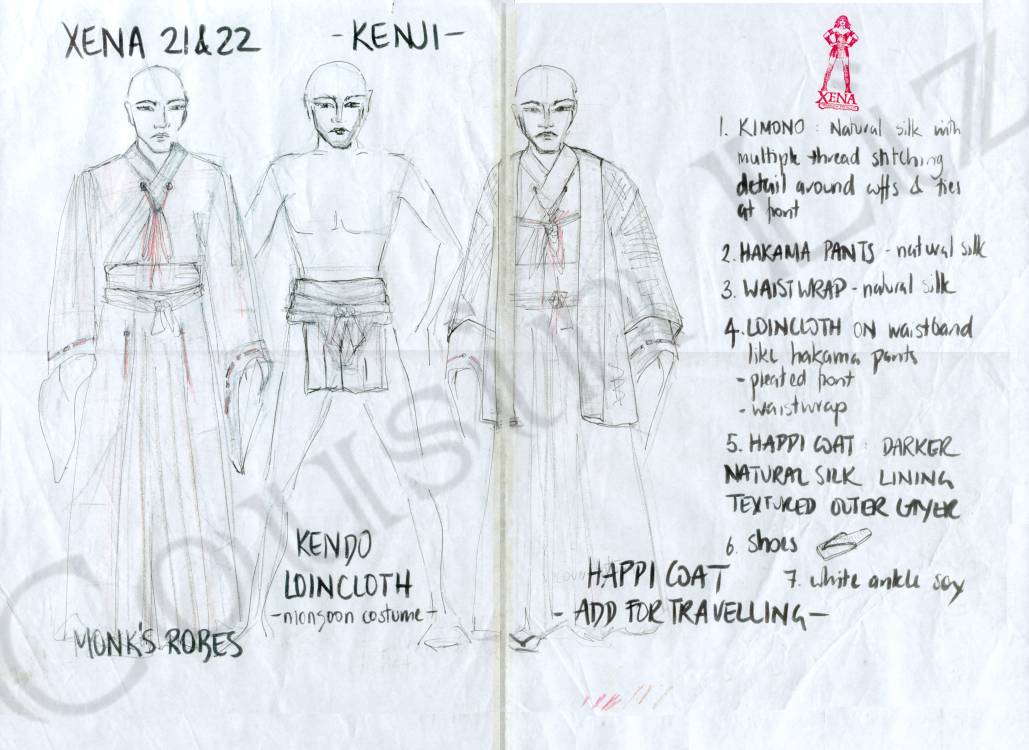 XENA 21&22 - KENJI -
XENA
1. KIMONO : Natural silk with
multiple thread stitching
detail around cuffs & ties
at front
2. HAKAMA PANTS - natural silk
3. WAISTWRAP - natural silk
4. LOINCLOTH ON waistband
like hakama pants
- pleated front
- waistwrap
5. HAPPI COAT : DARKER
NATURAL SILK LINING
TEXTURED OUTER LAYER
6. Shoes
7. white ankle
MONK'S ROBES
KENDO
LOINCLOTH
- monsoon costume -
HAPPI COAT
- ADD FOR TRAVELLING -
Cousin Liz